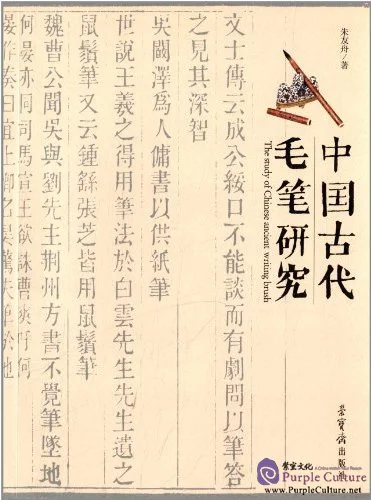 朱友舟/著
中国古代
毛笔研究
The study of Chinese ancient writing brush
文士傳云成公綏口不能談而有劇問以筆答
之見其深智
吳闞澤爲人傭書以供紙筆
世說王羲之得用筆法於白雲先生先生遺之
鼠鬚筆又云鍾繇張芝皆用鼠鬚筆
魏曹公聞吳與劉先主荆州方書不覺筆墜地
何晏亦同司馬宣王欲誅曹爽呼何
晏作奏曰宜上卿乙晏驚失筆於地
荣宝斋出版社
荣宝文化
Purple Culture
www.PurpleCulture.net